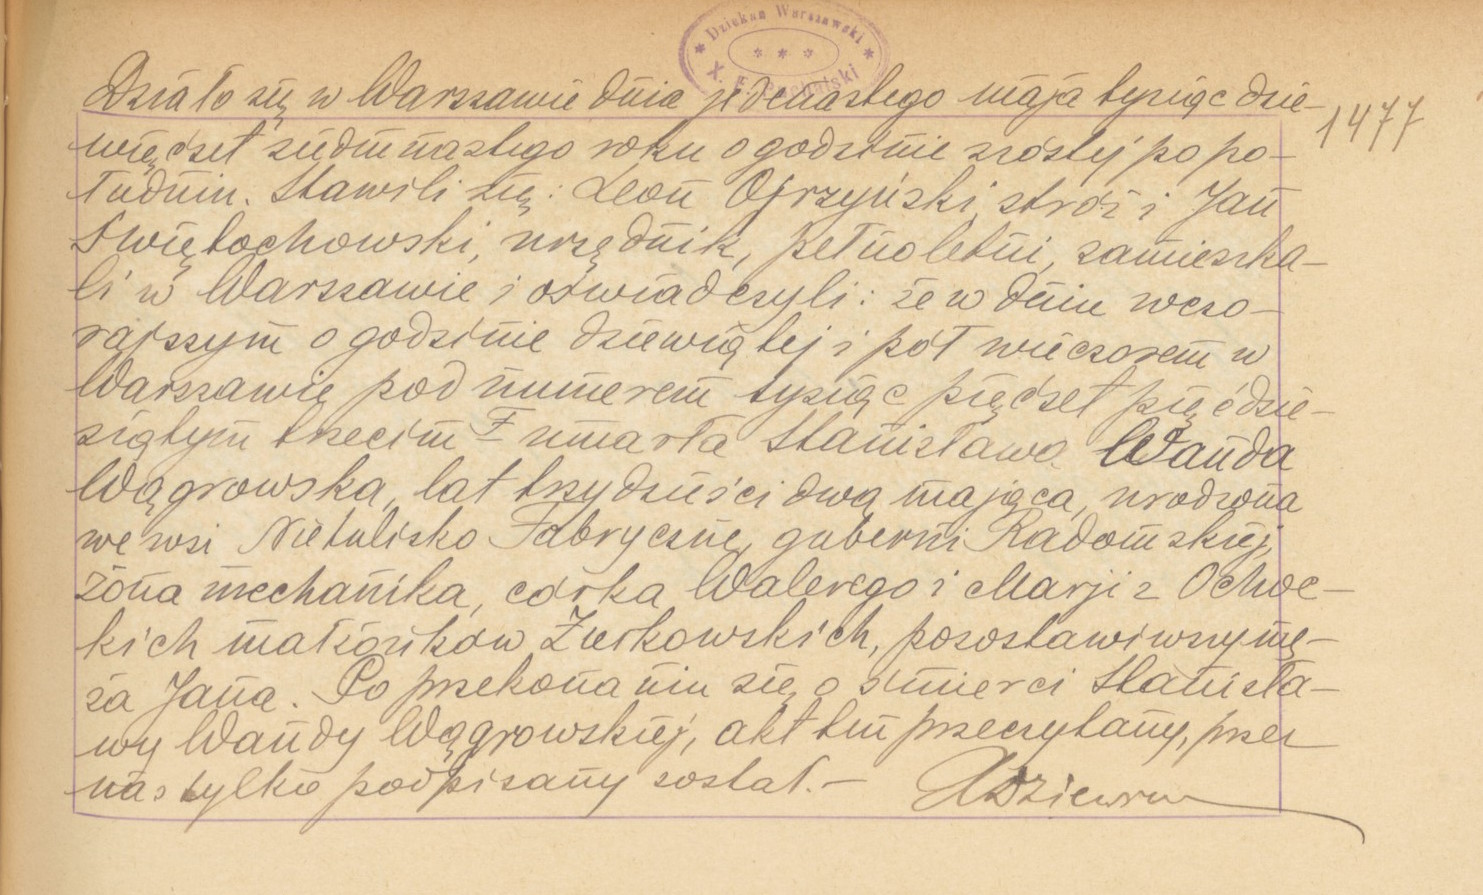 Dziekan Warszawski
Działo się w Warszawie dnia jedenastego maja tysiąc dzie-
1477
więćset siedmnastego roku o godzinie szóstej po po-
łudniu. Stawili się: Leon Ojrzyński, stróż i Jan
Świętochowski, urzędnik, pełnoletni, zamieszka-
li w Warszawie i oświadczyli: że w dniu wczo-
rajszym o godzinie dziewiątej i pół wieczorem w
Warszawie pod numerem tysiąc pięćset pięćdzie-
siątym trzecim F umarła Stanisława Wanda
Wągrowska, lat trzydzieści dwa mająca, urodzona
we wsi Nietulisko Fabryczne, guberni Radomskiej,
żona mechanika, córka Walerego i Marji z Ochoc-
kich małżonków Żurkowskich, pozostawiwszy mę-
ża Jana. Po przekonaniu się o śmierci Stanisła-
wy Wandy Wągrowskiej, akt ten przeczytany, przez
nas tylko podpisany został.-